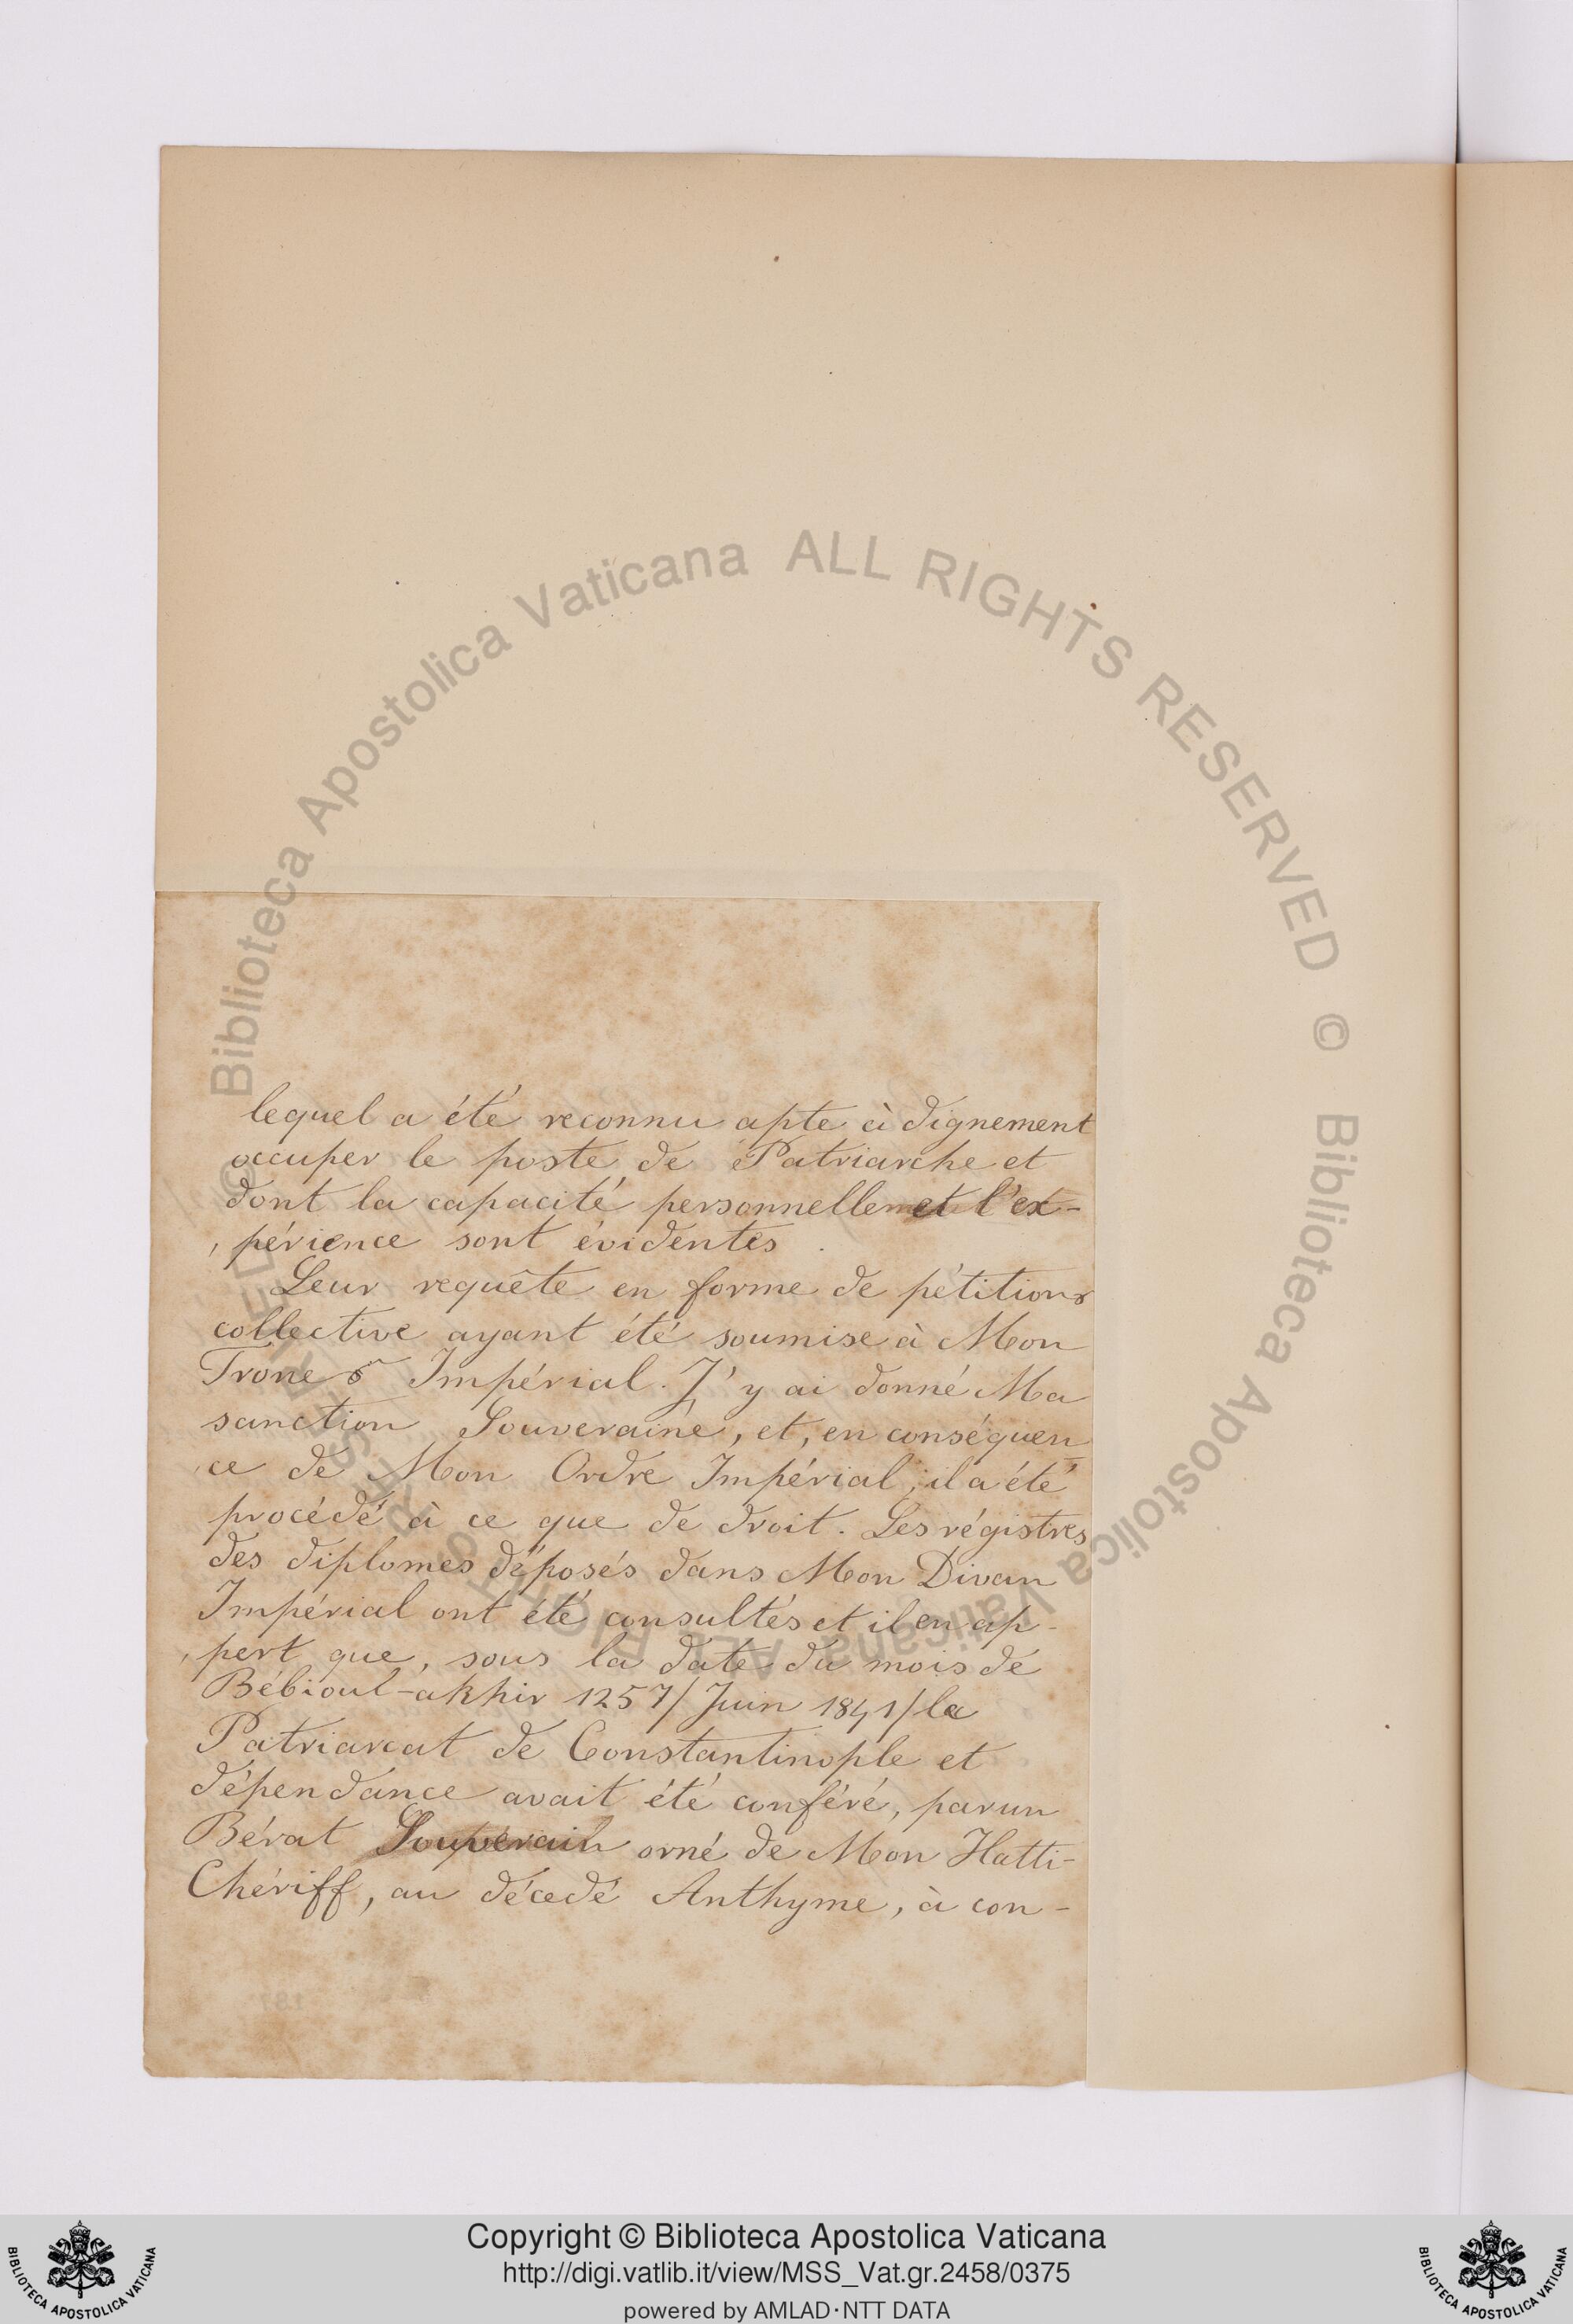 lequel a été reconnu apte à dignement
occuper le poste de Patriarche et
dont la capacité personnelle et l'ex-
, périence sont évidentes.
Leur requête en forme de pétition
collective ayant été soumise à Mon
Trone Impérial. J'y ai donné Ma
sanction Souveraine, et, en conséquen
, ce de Mon Ordre Impérial, il a été
procédé à ce que de droit. Les régistres
des diplomes déposés dans Mon Divan
Impérial ont été consultés et il en ap-
, pert que, sous la date du mois de
Bébioul-akhir 1257/Juin 1841/le
Patriarcat de Constantinople et
dépendance avait été conféré, par un
Bérat Souverain orné de Mon Hatti-
Chériff, au décedé Anthyme, à con-
© Biblioteca Apostolica Vaticana ALL RIGHTS RESERVED © Biblioteca Apostolica Vaticana ALL RIGHTS RESERVED
Copyright © Biblioteca Apostolica Vaticana
http://digi.vatlib.it/view/MSS_Vat.gr.2458/0375
powered by AMLAD·NTT DATA
BIBLIOTECA APOSTOLICA VATICANA
BIBLIOTECA APOSTOLICA VATICANA